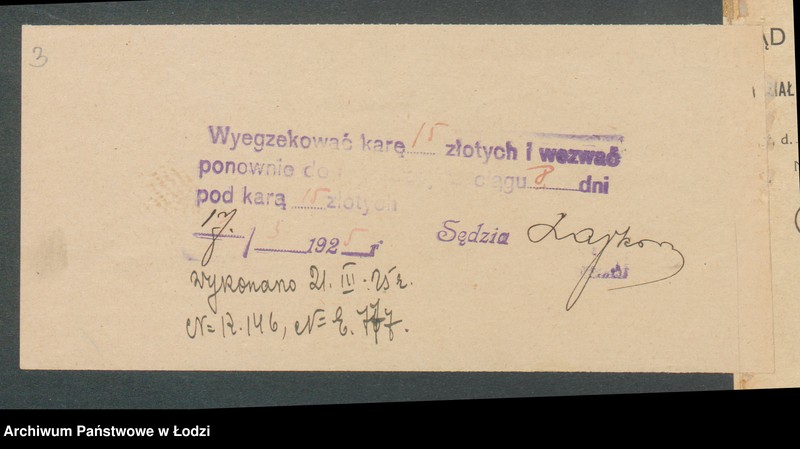 3
Wyegzekować karę 15 złotych i wezwać
ponownie do ciągu 8 dni
pod karą 15 złotych
17. / 3 1925 r
Sędzia
wykonano 21. III. 25 r.
N= R. 146, N= E. 777.
ĄD
ZIAŁ
d.
Archiwum Państwowe w Łodzi